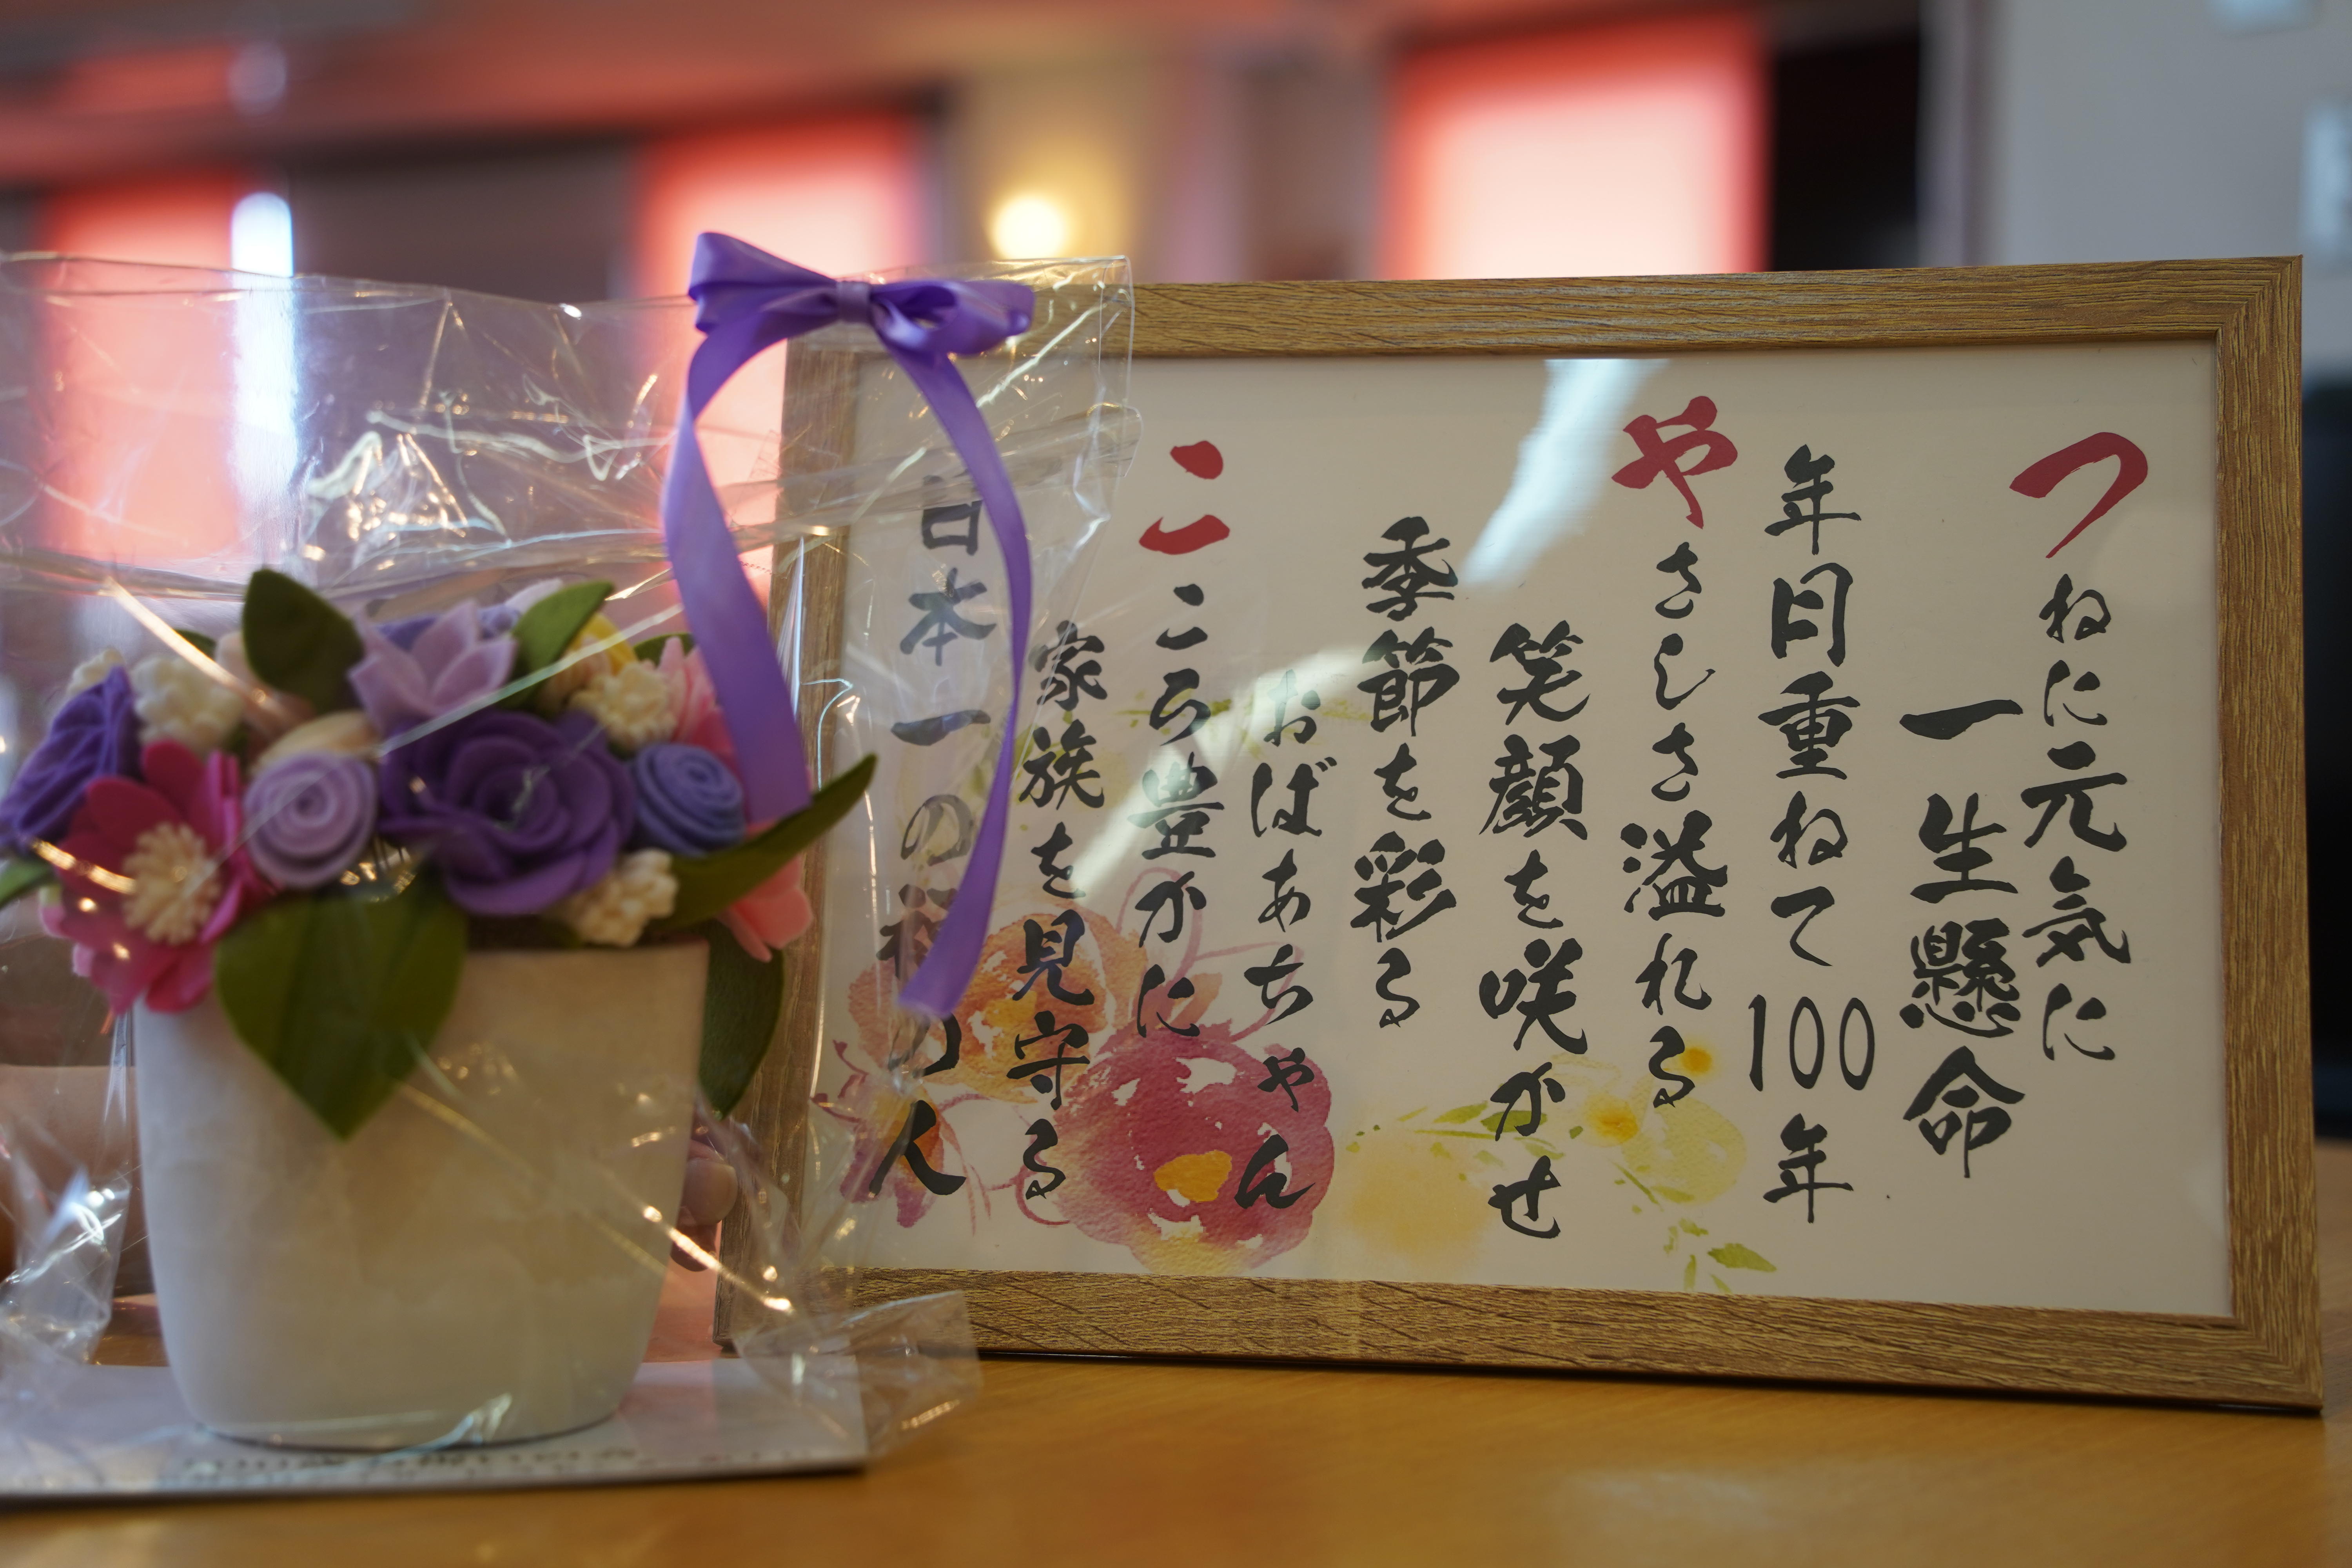 つねに元気に
一生懸命
年月重ねて100年
やさしさ溢れる
笑顔を咲かせ
季節を彩る
おばあちゃん
こころ豊かに
家族を見守る
日本一の福の人